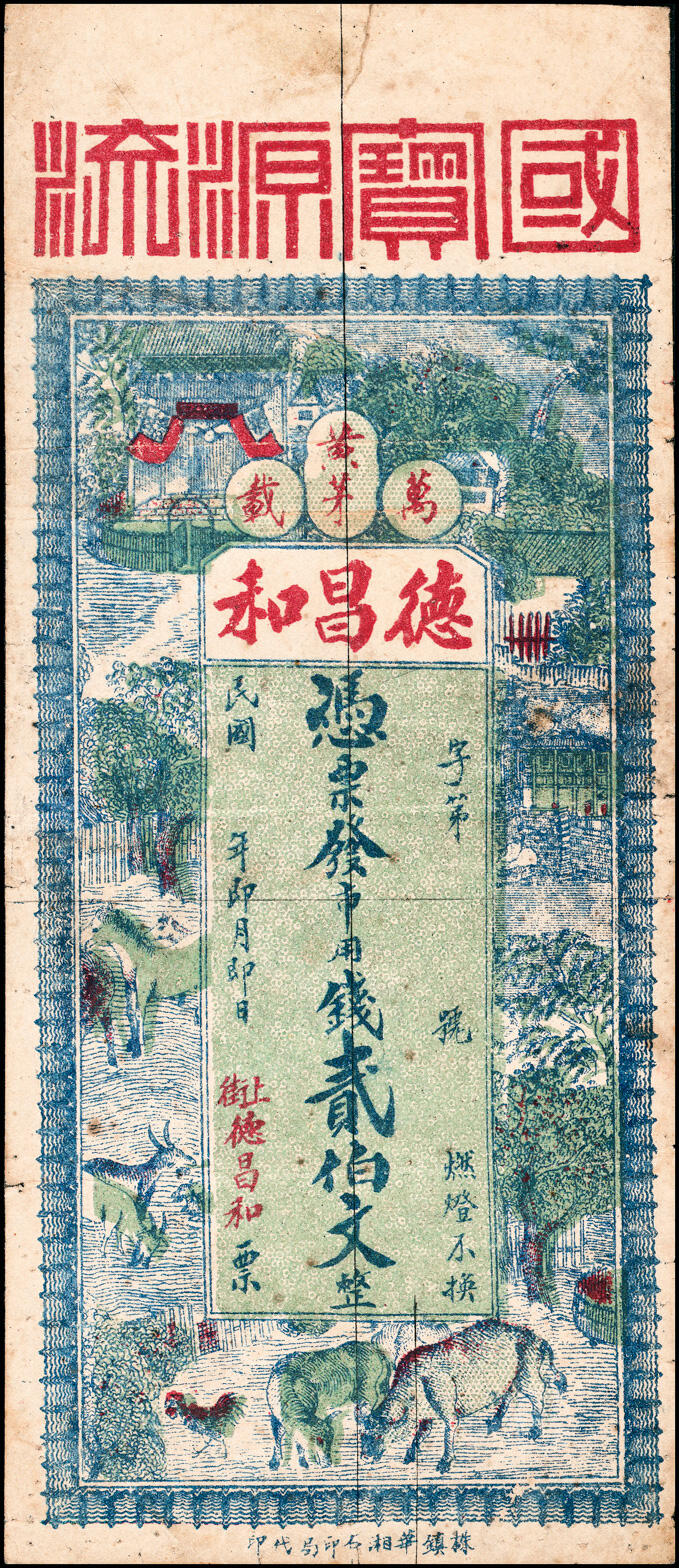 國寶源流
萬載
黄茅
德昌和
字第 號 燃燈不換
憑票發市用錢貳伯文整
民國 年即月即日 上街德昌和票
株鎮華湘石印局代印